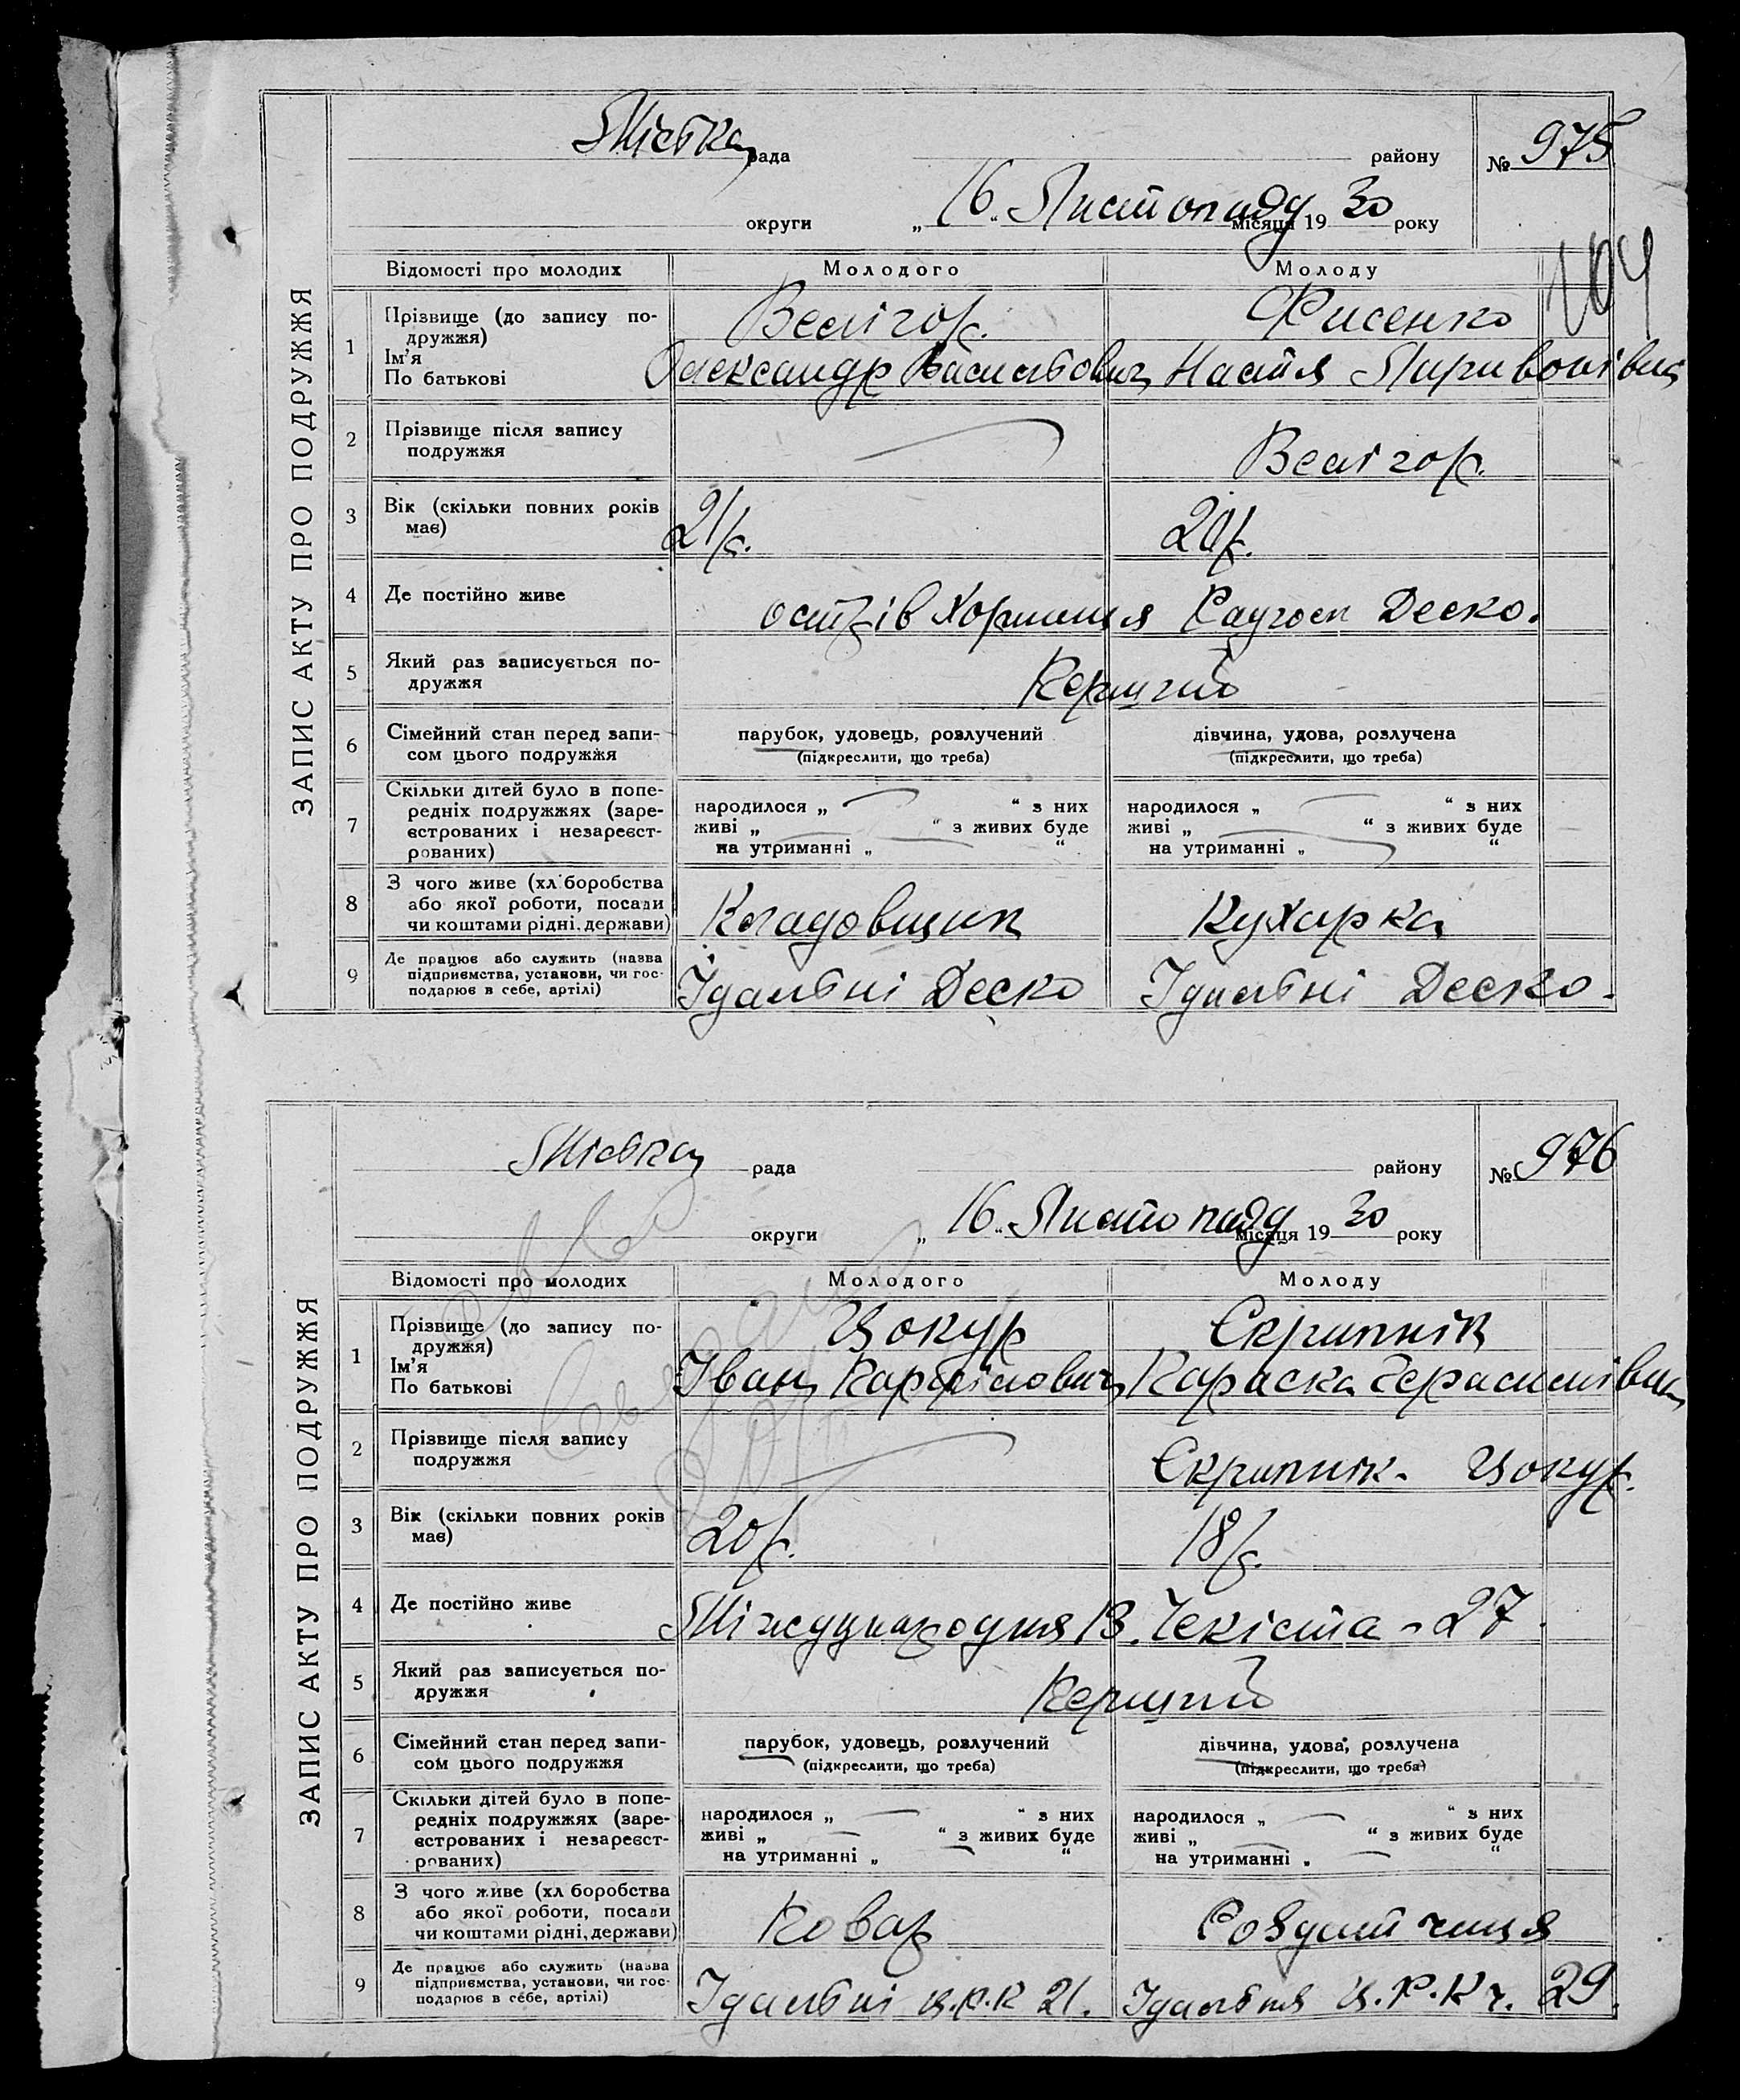 ЗАПИС АКТУ ПРО ПОДРУЖЖЯ
Міська рада району № 975
округи „16“ Листопаду місяця 1930 року
104
Відомості про молодих Молодого Молоду
1 Прізвище (до запису по-
дружжя)
Ім’я
По батькові
Велігор. Фисенко
Олександр Васильович Настя Паривонівна
2 Прізвище після запису
подружжя
Велігор.
3 Вік (скільки повних років
має)
21р. 20р.
4 Де постійно живе
острів Хортиця Радгосп Деско.
5 Який раз записується по-
дружжя
Перший
6 Сімейний стан перед запи-
сом цього подружжя
парубок, удовець, розлучений дівчина, удова, розлучена
(підкреслити, що треба) (підкреслити, що треба)
7 Скільки дітей було в попе-
редніх подружжях (заре-
єстрованих і незареєст-
рованих)
народилося „ “ з них народилося „ “ з них
живі „ “ з живих буде живі „ “ з живих буде
на утриманні „ “ на утриманні „ “
8 З чого живе (хліборобства
або якої роботи, посади
чи коштами рідні, держави)
Кладовщик Кухарка
9 Де працює або служить (назва
підприємства, установи, чи гос-
подарює в себе, артілі)
Їдальні Деско Їдальні Деско.
ЗАПИС АКТУ ПРО ПОДРУЖЖЯ
Міська рада району № 976
округи „16“ Листопаду місяця 1930 року
Відомості про молодих Молодого Молоду
1 Прізвище (до запису по-
дружжя)
Ім’я
По батькові
Цокур Скрипнік
Іван Карпілович Параска Герасимівна
2 Прізвище після запису
подружжя
Скрипнік - Цокур.
3 Вік (скільки повних років
має)
20р. 18р.
4 Де постійно живе
Міжуународня 13. Чекіста - 27
5 Який раз записується по-
дружжя
Перший
6 Сімейний стан перед запи-
сом цього подружжя
парубок, удовець, розлучений дівчина, удова, розлучена
(підкреслити, що треба) (підкреслити, що треба)
7 Скільки дітей було в попе-
редніх подружжях (заре-
єстрованих і незареєст-
рованих)
народилося „ “ з них народилося „ “ з них
живі „ “ з живих буде живі „ “ з живих буде
на утриманні „ “ на утриманні „ “
8 З чого живе (хліборобства
або якої роботи, посади
чи коштами рідні, держави)
Повар Роздатчиця
9 Де працює або служить (назва
підприємства, установи, чи гос-
подарює в себе, артілі)
Їдальні Ц.Р.К 21. Їдальня Ц.Р.К ч. 29.